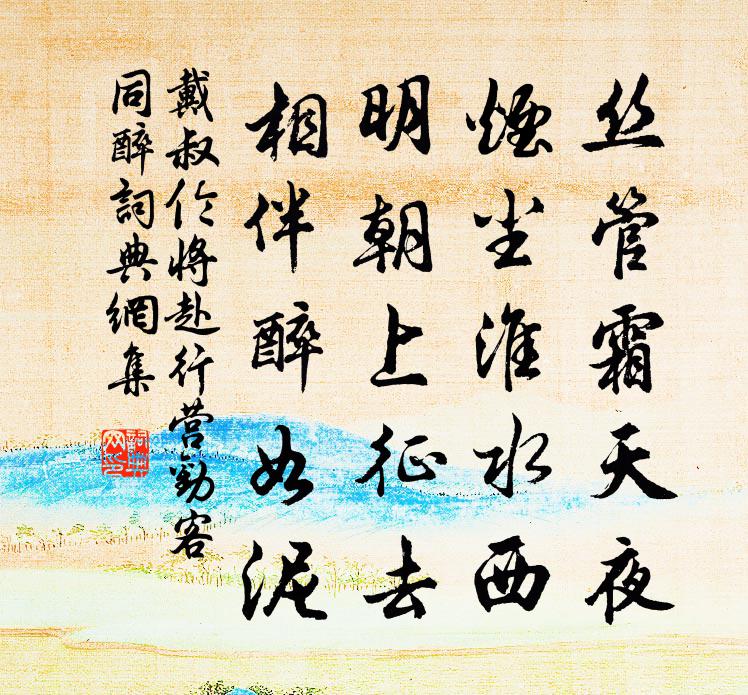 丝管霜天夜
煙尘淮水西
明朝上征去
相伴醉如泥
戴叔伦将赴行营勤客
同醉詞典網集
詞典網印